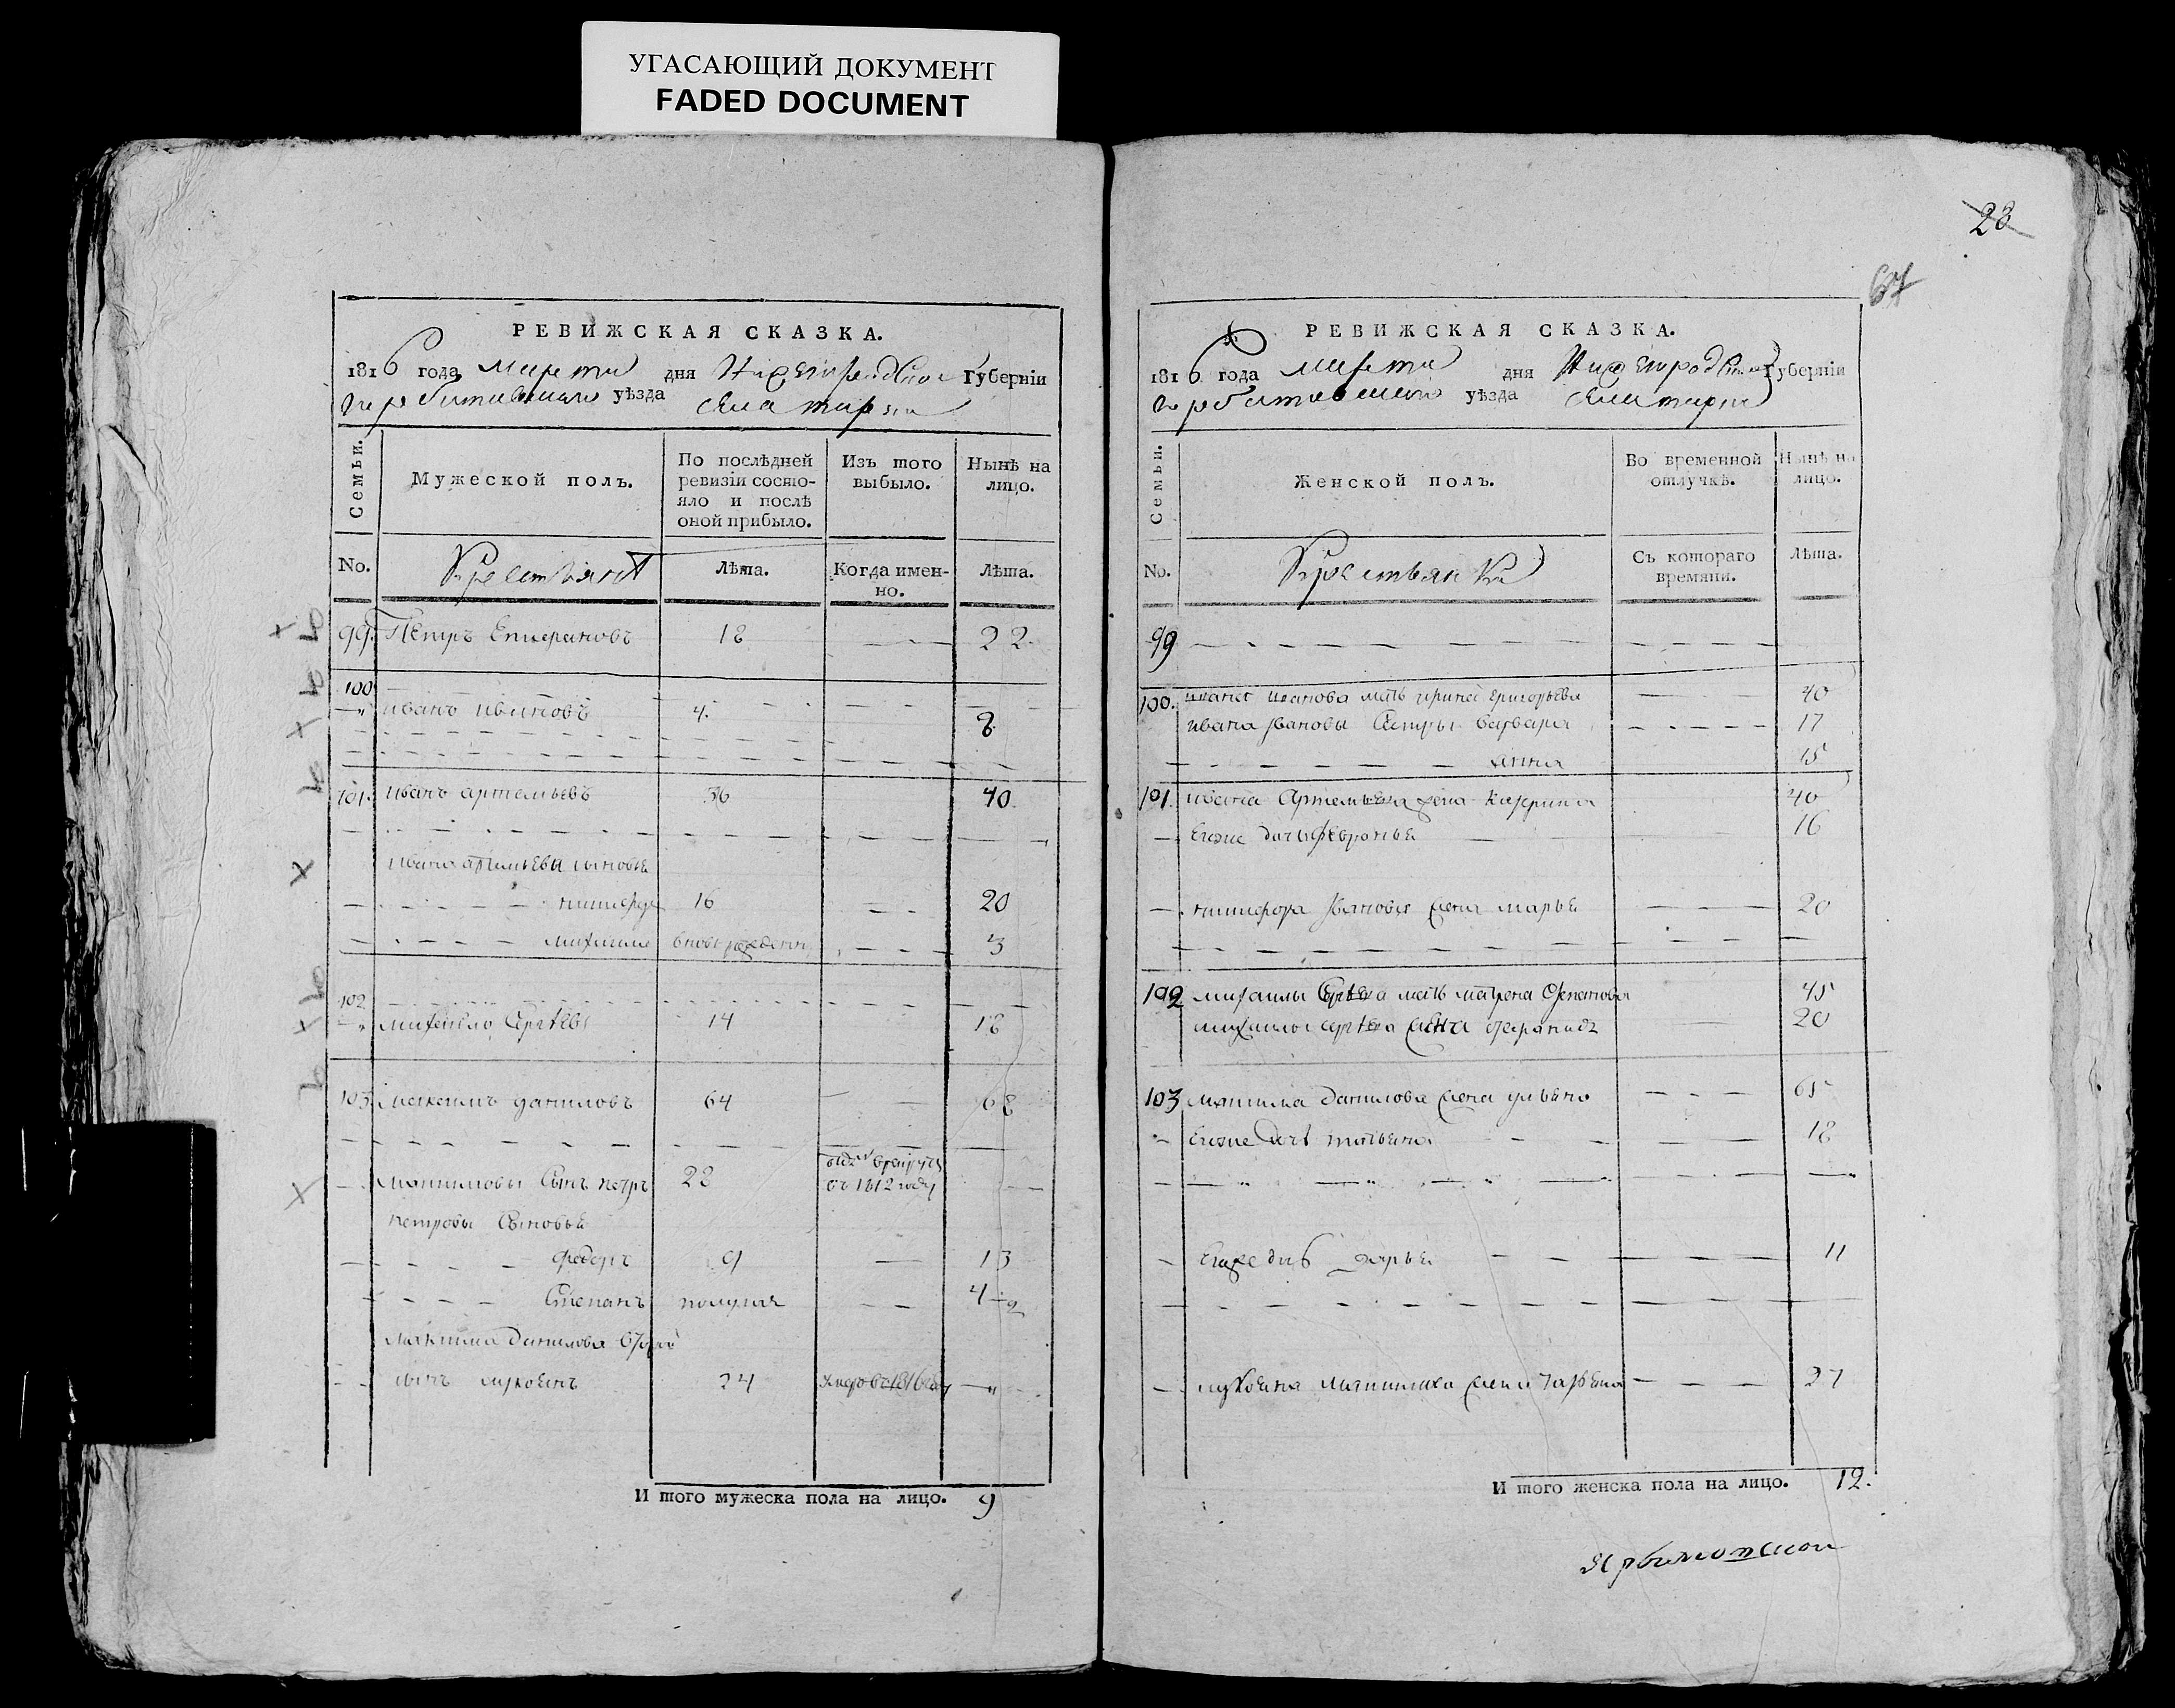 УГАСАЮЩИЙ ДОКУМЕНТ
FADED DOCUMENT
РЕВИЖСКАЯ СКАЗКА.
1816 года марта дня Нижегородской Губернїи
Горбатовскаго уѣзда села
Семьи.
Мужеской полъ.
По послѣдней ревизїи состояло и послѣ оной прибыло.
Изъ того выбыло.
Нынѣ на лицо.
No. Крестьяне Лѣта. Когда именно. Лѣта.
99. Петръ 18 — 22.
100
Иванъ Ивановъ 4. 8
101. Иванъ Артемьевъ 36 40.
Ивана Артемьева сыновья
Никифоръ 16 — 20
Михайла вновь рожденъ — 3
102
Михайло Сергѣевъ 14 18
103. Максимъ Даниловъ 64 — 68
Максимовы сынъ Петръ 28 въ рекруты
въ 1812 году —
Петровы сыновья
Федоръ 9 — 13
Степанъ полугода — 4
Максима Данилова второй
сынъ 24 —
И того мужеска пола на лицо. 9
23
67
РЕВИЖСКАЯ СКАЗКА.
1816 года марта дня Нижегородской Губернїи
Горбатовскаго уѣзда села
Семьи.
Женской полъ.
Во временной отлучкѣ.
Нынѣ на лицо.
No. Крестьянки Съ котораго времяни. Лѣта.
99
100. Ивана Иванова мать Ирина Григорьева — 40
Ивана Ивановы сестры Варвара — 17
Анна 15
101. Ивана Артемьева жена Катерина 40
Егоже дочь Февронья — 16
Никифора Иванова жена Марья — 20
102 Михайлы Сергѣева мать Матрена Степанова 45
Михайлы Сергѣева жена — 20
103 Максима Данилова жена Ульяна — 65
Егоже дочь Татьяна — 18
Егоже дочь Дарья — 11
Максимова жена — 27
И того женска пола на лицо. 12.